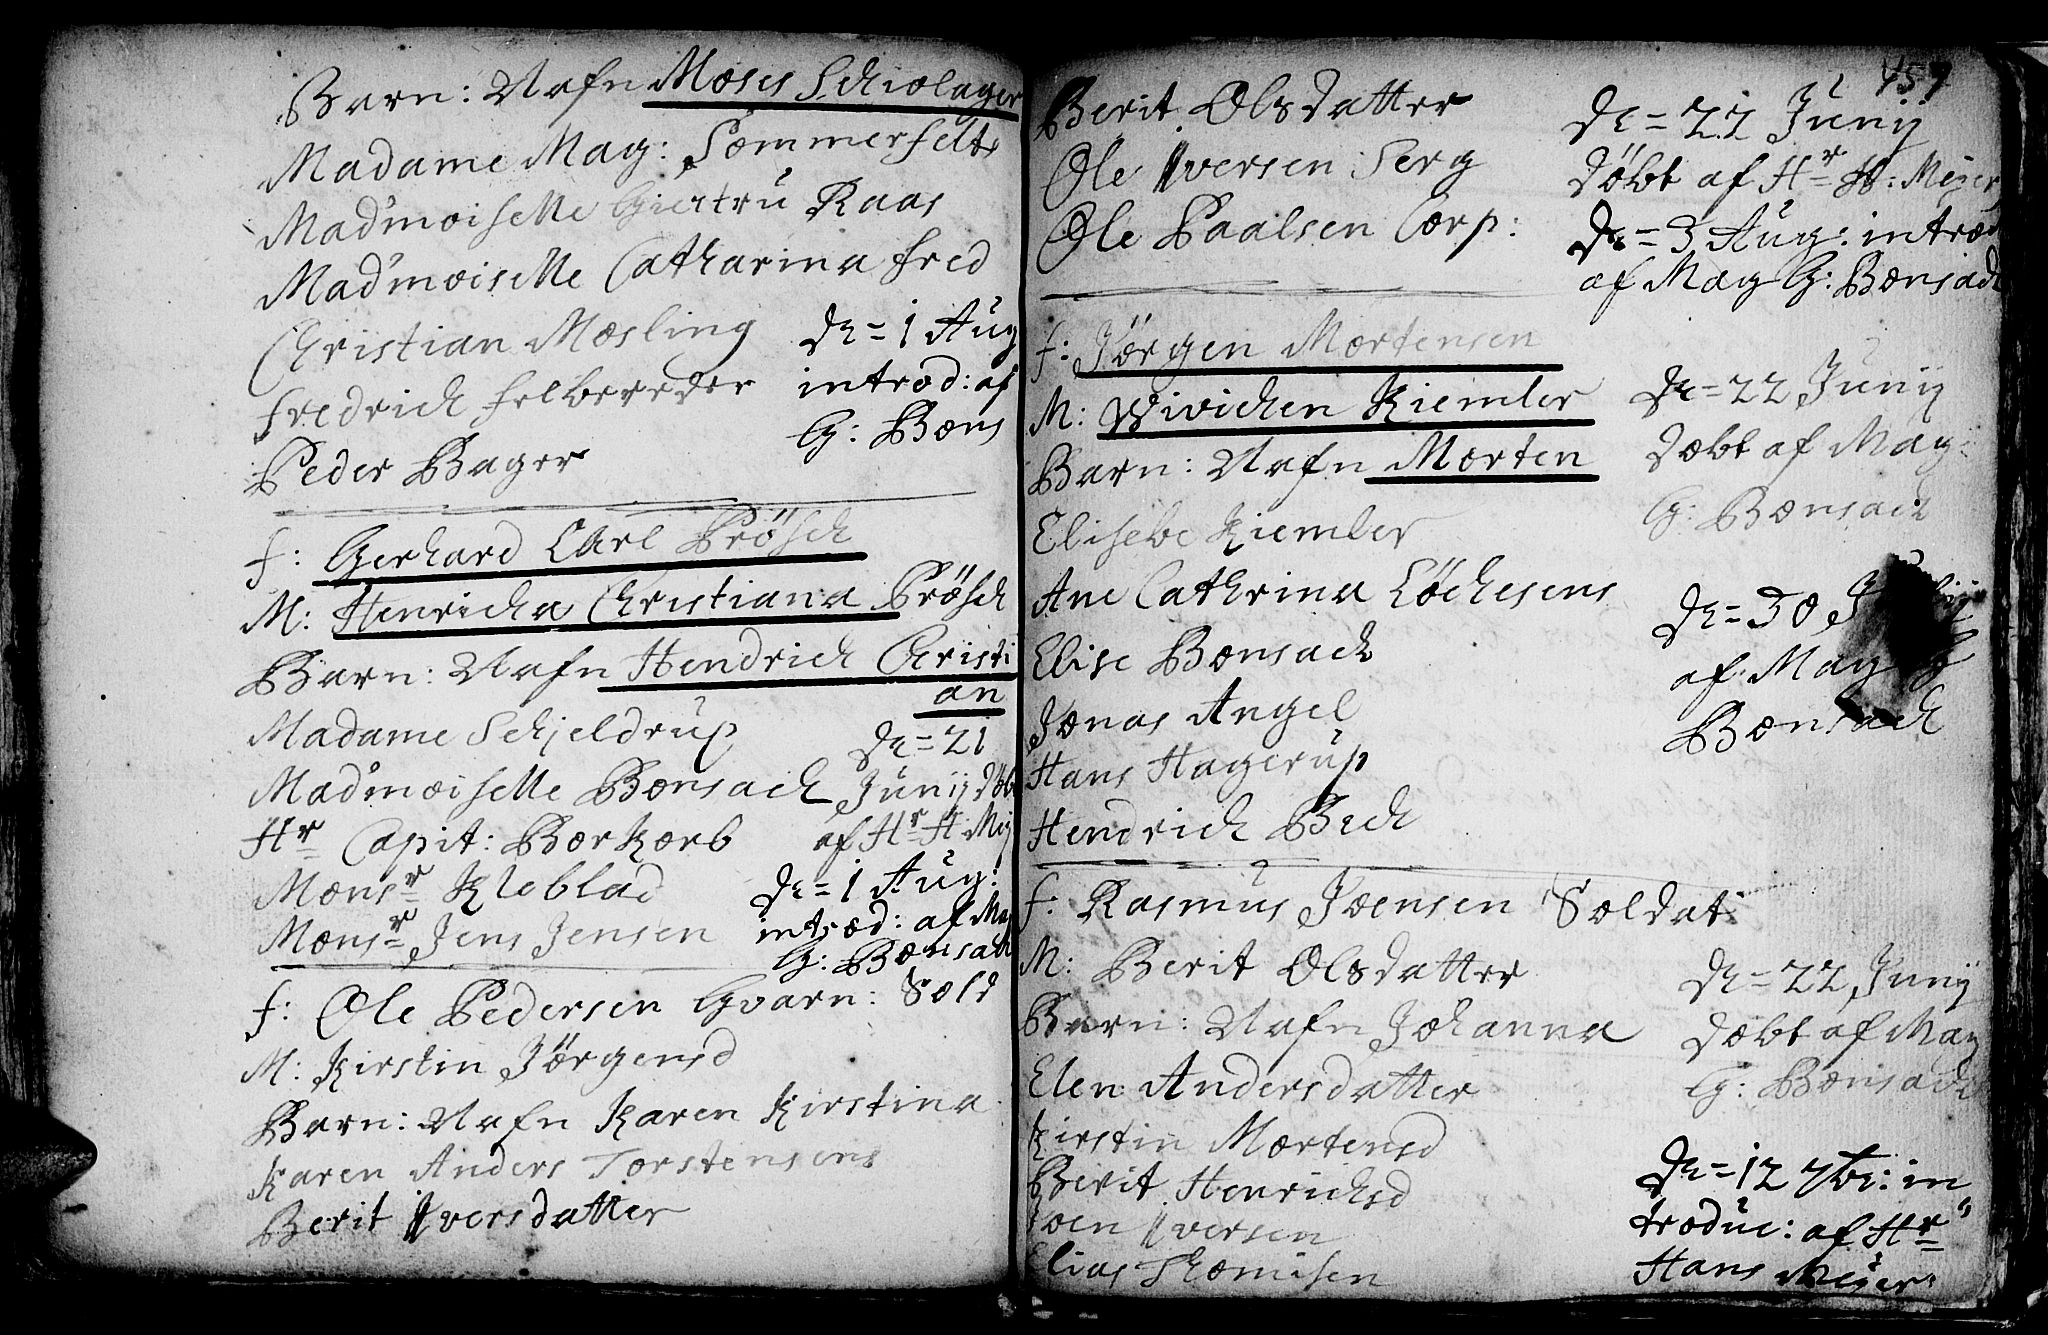 Barn: Nafn Moses Schiolager
Madame Mag: Sommerfelts
Mad'moiselle Giertru Kaas
Mad'moiselle Catharina Fred
Christian Mosling
Fredrich Felbereder
Peder Bager
D = 1 Aug
introd: af
G: Bons
f: Gerhard Carl Prösch
M: Henricha Christiana Prösch
Barn: Nafn Hendrich Christi
an
Madame Schjeldrup
Mad'moiselle Bonsach
Hr Capit: Borkorb
Monsr Kleblad
Monsr Jens Jensen
D = 21
Junij döb
af Hr H Mej
D = 1 Aug:
introd: af Mag
G: Bonsach
f: Ole Pedersen Gvarn: Sold
M: Kirstin Jörgensd
Barn: Nafn Karen Kirstina
Karen Anders Torstensens
Berit Iversdatter
457
Berit Olsdatter
Ole Iversen Serg
Ole Paalsen Corp:
D = 22 Junij
döbt af Hr H: Mejer
D = 3 Aug: introd
af Mag G: Bonsach
f: Jörgen Mortensen
M: Wivichen Kiemler
Barn: Nafn Morten
Elisebe Kiembler
Ane Cathrina Löchesens
Elise Bonsach
Jonas Angel
Hans Hagerup
Hendrich Bech
D = 22 Junij
döbt af Mag:
G: Bonsach
D = 30
af Mag G
Bonsach
f: Rasmus Joensen Soldat
M: Berit Olsdatter
Barn: Nafn Johanna
Elen Andersdatter
Kirstin Mortensd
Berit Henrichsd
Joen Iversen
Elias Thomisen
D = 22 Junij
döbt af Mag
G: Bonsach
D = 12 7br: in
troduc: af Hr
Hans Mejer